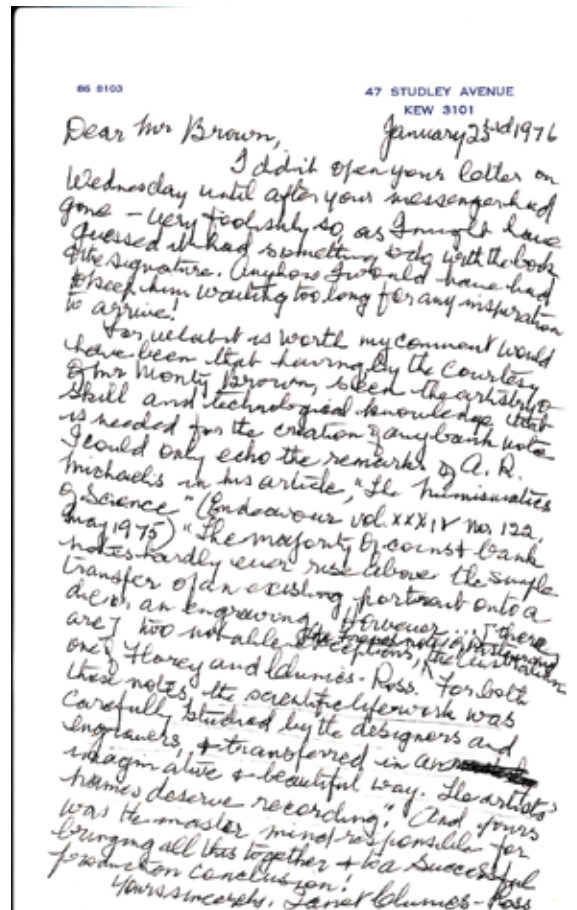 86 8103
47 STUDLEY AVENUE
KEW 3101
Dear Mr Brown, January 23rd 1976
I didn't open your letter on
Wednesday until after your messenger had
gone – very foolishly so, as I might have
guessed it had something to do with the book
& the signature. Anyhow I would have had
to keep him waiting too long for any inspiration
to arrive!
For what it is worth my comment would
have been that having, by the courtesy
of Mr Monty Brown, seen the artistry &
skill and technological knowledge that
is needed for the creation of any bank note
I could only echo the remarks of A. R.
Michaelis in his article, "The Numismatics
of Science" (Endeavour vol. XXXIV no. 122,
May 1975) "The majority of coins & bank
notes hardly ever rise above the simple
transfer of an existing portrait onto a
die or an engraving. However ... [there
are] two notable exceptions, the French note of Pasteur and the Australian
one of Florey and Clunies-Ross. For both
these notes, the scientific lifework was
carefully studied by the designers and
engravers, & transferred in an
imaginative & beautiful way. The artists'
names deserve recording." And yours
was the master mind responsible for
bringing all this together & to a successful
production conclusion!
Yours sincerely, Janet Clunies-Ross